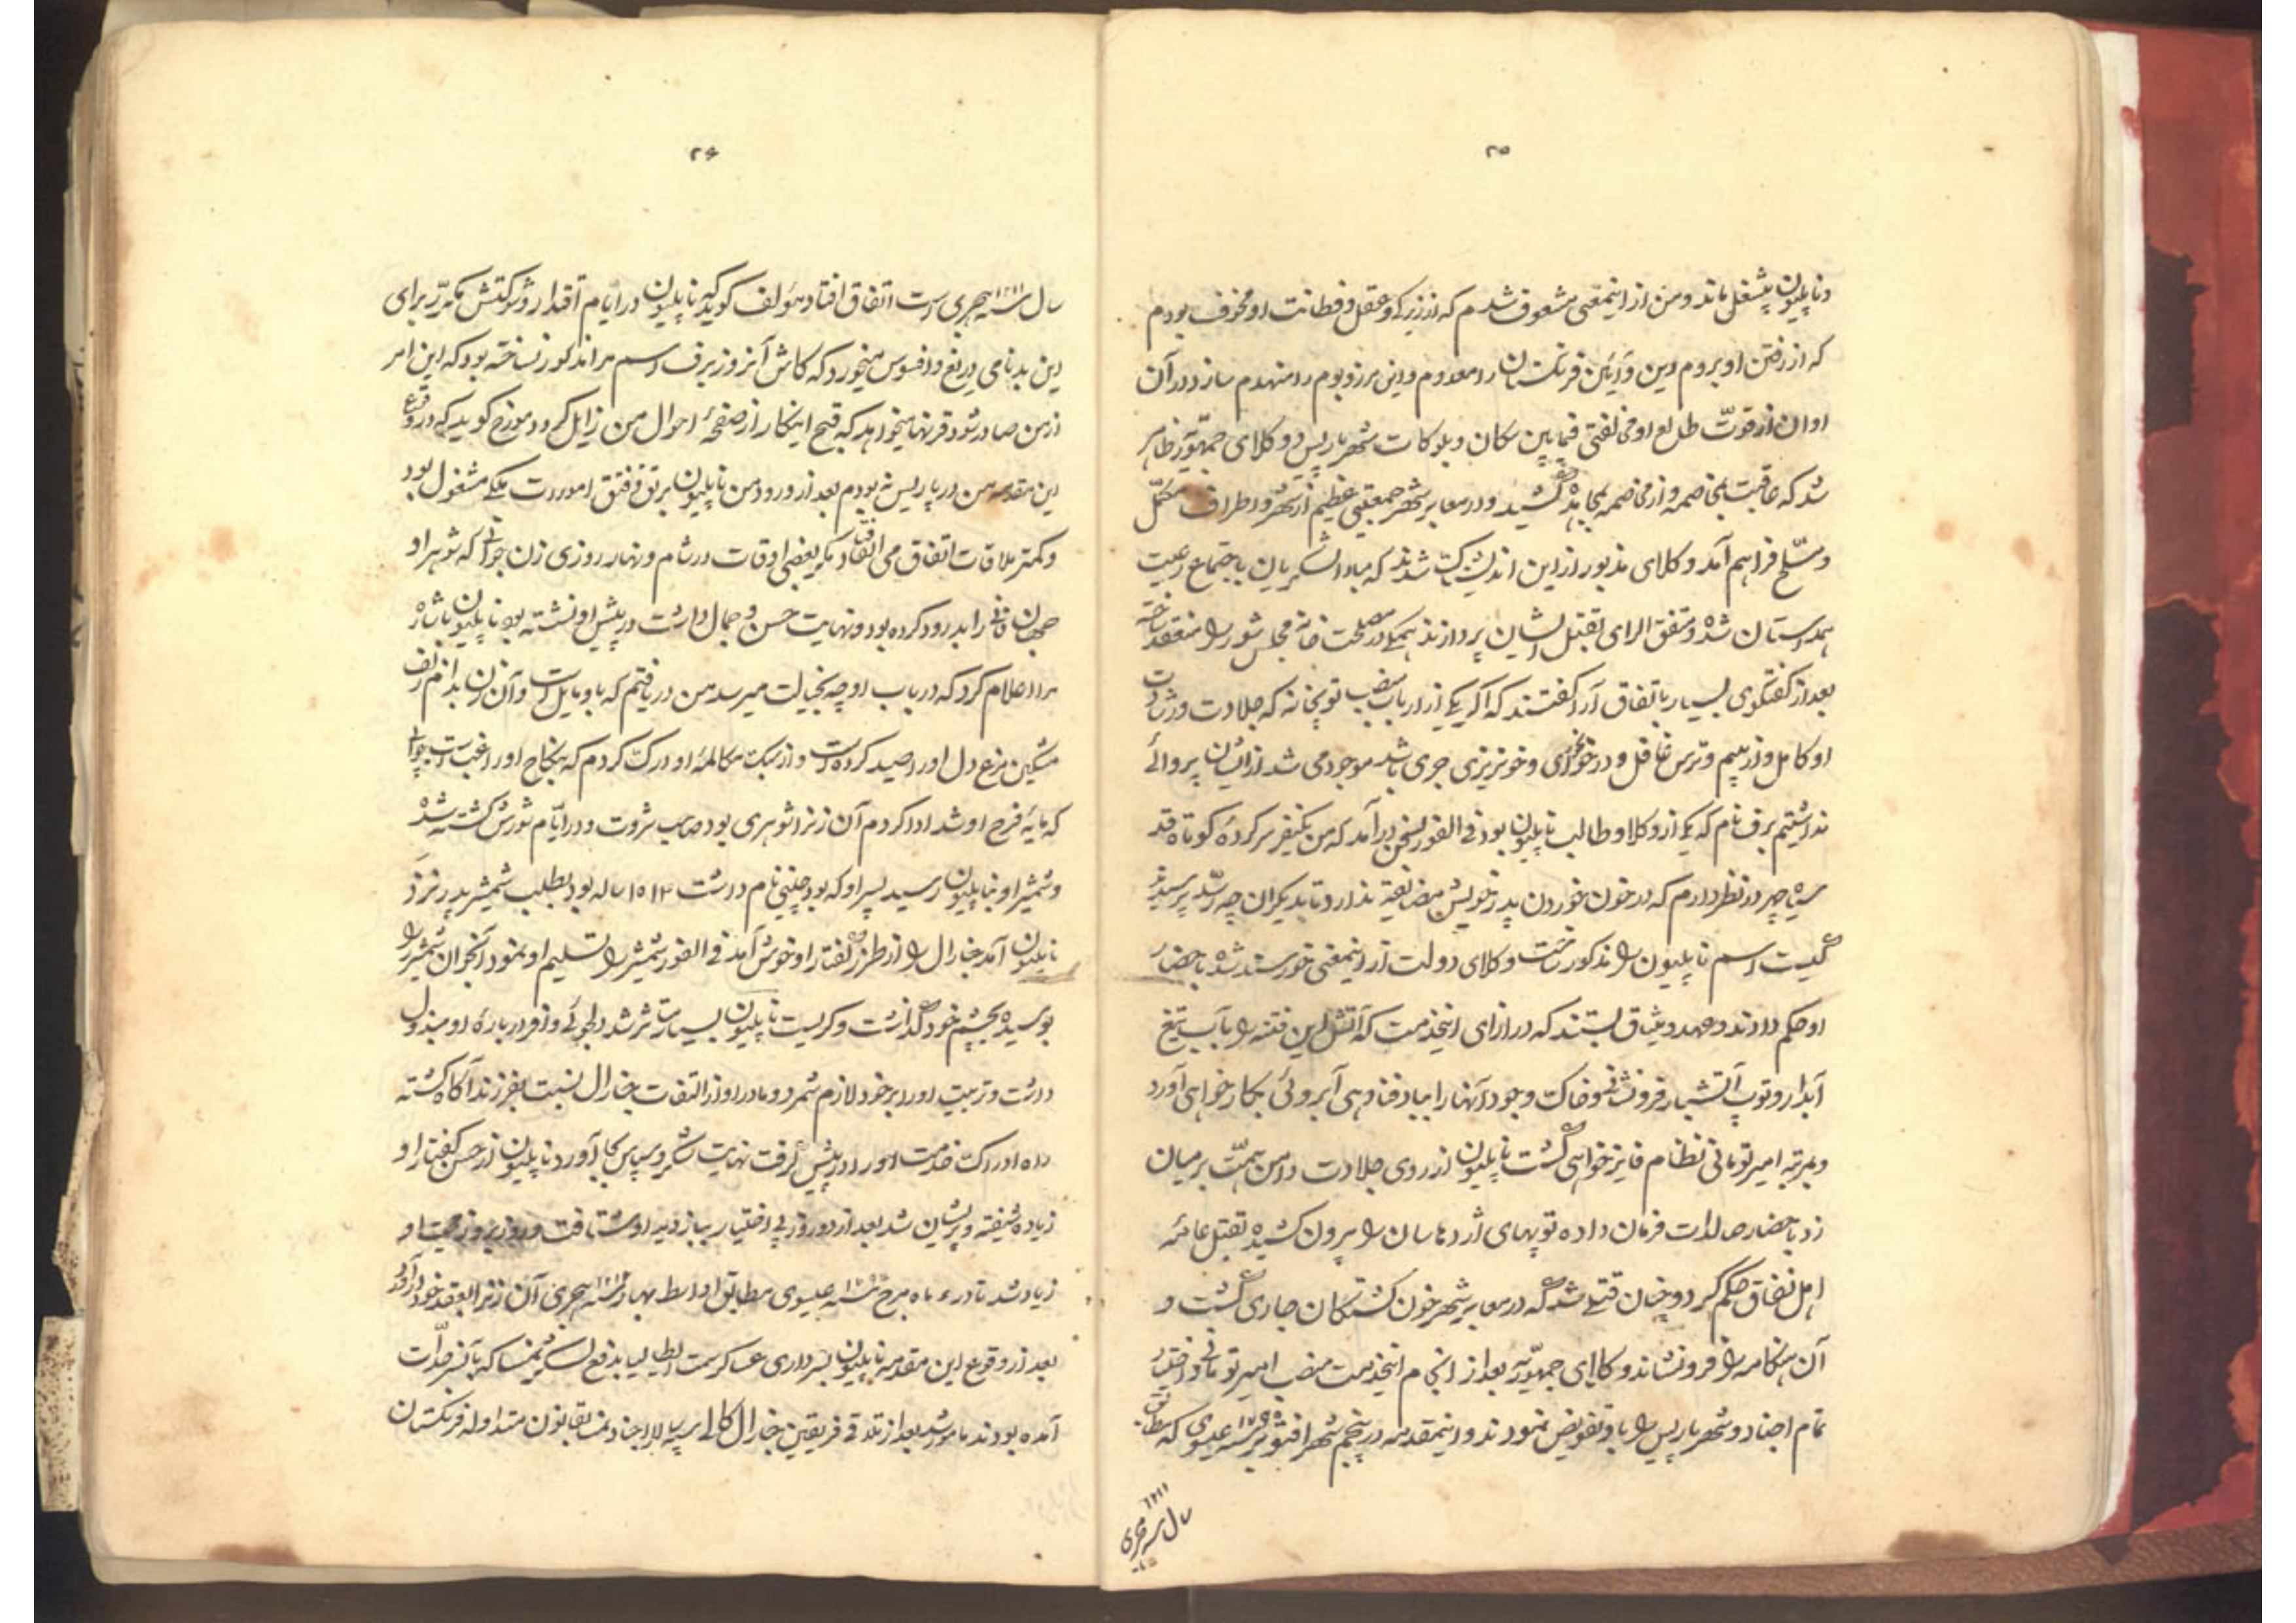 ۲۵
و ناپلیون بیشغل ماند و من از اینمعنی مشعوف شدم که از زیرکی و عقل و فطانت او مخوف بودم
که از رفتن او بروم دین و آئین فرنگستان را معدوم و این مرز و بوم را منهدم سازد در آن
اوان از قوّت طالع او مخالفتی فیمابین سکان و بلوکات شهر پاریس و وکلای جمهوّریّه ظاهر
شد که عاقبت بمخاصمه و از مخاصمه بمجاهده کشید و در معابر شهر جمعیتی عظیم از شهر و اطراف مکمّل
و مسلّح فراهم آمد و وکلای مذبور از این اندیشناک شدند که مبادا لشکریان باجتماع رعیت
همداستان شده و متفق الرای بقتل ایشان پردازند همگی در مصلحت خانه مجلس شور را منعقد ساخته
بعد از گفتگوی بسیار باتفاق آرا گفتند که اگر یکی از ارباب منصب توپخانه که جلادت و رشادت
او کامل و از بیم و ترس غافل و در خونخواری و خونریزی جری باشد موجود می شد از ایشان پروائی
نداشتیم برف نام که یکی از وکلا و طالب ناپلیون بود فی الفور بسخن درآمد که من یکنفر سرکرده کوتاه قد
سیاه چرده در نظر دارم که در خون خوردن پدر خویش مضایقه ندارد تا بدیگران چه رسد پرسیدند
کیست اسم ناپلیون را مذکور ساخت وکلای دولت از اینمعنی خورسند شده باحضار
او حکم دادند و عهد و میثاق بستند که در ازای اینخدمت که آتش این فتنه را بآب تیغ
آبدار و توپ آتشبار فرو نشانی و خاک وجود آنها را بباد فنا دهی آبروئی بکار خواهی آورد
و بمرتبه امیر تومانی نظام فایز خواهی گشت ناپلیون از روی جلادت دامن همّت بر میان
زد باحضار صلدات فرمان داده توپهای اژدهاسان را بیرون کشیده بقتل عامّه
اهل نفاق حکم کرد و چنان قتلی شد که در معابر شهر خون کشتگان جاری گشت و
آن هنگامه را فرو نشاند وکلای جمهوّریّه بعد از انجام اینخدمت منصب امیر تومانی و اختیار
تمام اجناد و شهر پاریس را باو تفویض نمودند و اینمقدمه در پنجم شهر اقتوبر ۱۷۹۵ سنه عیسوی که مطابق
سال ۱۲۱۱ سنه هجری
۲۶
سال ۱۲۱۱ سنه هجری است اتفاق افتاد مؤلف گوید که ناپلیون در ایام اقتدار و شوکتش مکرّر برای
این بدنامی دریغ و افسوس میخورد که کاش آنروز برف اسم مرا مذکور نساخته بود که این امر
از من صادر شود قرنها میخواهد که قبح اینکار از صفحهٔ احوال من زایل گردد مورخ گوید که در وقوع
این مقدمه من در پاریس نبودم بعد از ورود من ناپلیون برتق و فتق امورات ملکی مشغول بود
و کمتر ملاقات اتفاق می افتاد مگر بعضی اوقات در شام و نهار روزی زن جوانی که شوهر او
جهان فانی را بدرود کرده بود و نهایت حسن و جمال داشت در پیش او نشسته بود ناپلیون باشاره
مرا اعلام کرد که در باب او چه بخیالت میرسد من دریافتم که باو مایل است و آن زن بدام زلف
مشکین مرغ دل او را صید کرده است و از سبک مکالمهٔ او درک کردم که بنکاح او راغب است جوابی
که مایهٔ فرح او شد ادا کردم آن زن را شوهری بود صاحب ثروت و در ایّام شورش کشته شده
و شمشیر او بناپلیون رسید پسر او که بوجینی نام داشت ۱۴ ۱۵ ساله بود بطلب شمشیر پدر نزد
ناپلیون آمد جنارال را از طرز گفتار او خوش آمد فی الفور شمشیر را تسلیم او نمود آنجوان شمشیر را
بوسیده بچشم خود گذاشت و گریست ناپلیون بسیار متاثر شد دلجوئی وافر درباره او مبذول
داشت و تربیت او را بر خود لازم شمرد و مادر او از التفات جنارال نسبت بفرزند آگاه گشته
راه ادراک خدمت او را در پیش گرفت نهایت شکر و سپاس بجا آورد ناپلیون از حسن گفتار او
زیاده شیفته و پریشان شد بعد از دو روز بی اختیار ببازدید او شتافت و روز بروز محبت او
زیاد شد تا در ماه مرح سنه عیسوی مطابق اواسط بهار سنه هجری آن زنرا بعقد خود درآورد
بعد از وقوع این مقدمه ناپلیون بسرداری عساکر سمت ایطالیا بدفع لشکر نمسا که بآنسر حدّات
آمده بودند مامور شد بعد از تلاقی فریقین جنارال کالی سپه سالار اجناد نمسه بقانون متداوله فرنگستان